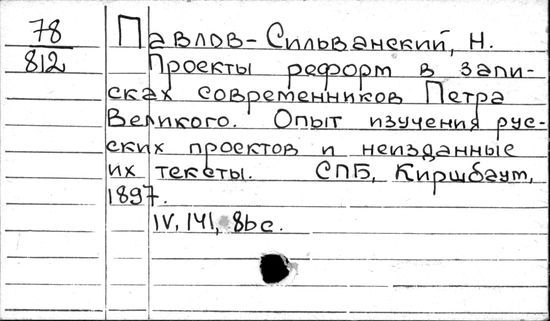 78
812
Павлов-Сильванский, Н.
Проекты реформ в запи-
сках современников Петра
Великого. Опыт изучения рус-
ских проектов и неизданные
их тексты. СПБ, Киршбаум,
1897.
IV, 141, 86 с.